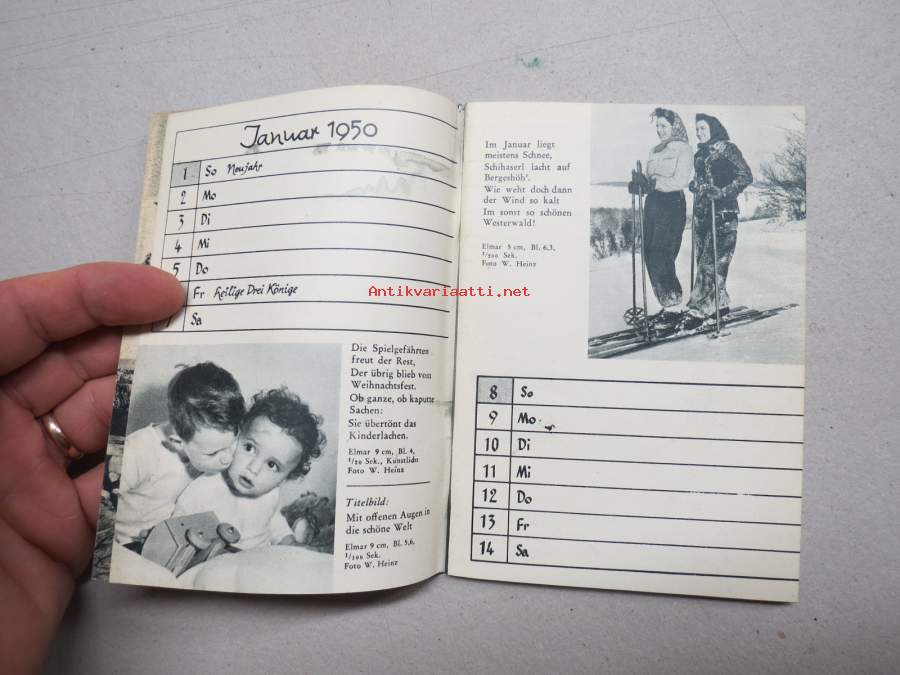 Januar 1950
1 So Neujahr
2 Mo
3 Di
4 Mi
5 Do
Fr Heilige Drei Könige
7 Sa
Die Spielgefährten
freut der Rest,
Der übrig blieb vom
Weihnachtsfest.
Ob ganze, ob kaputte
Sachen:
Sie übertönt das
Kinderlachen.
Elmar 9 cm, Bl. 4,
1/20 Sek., Kunstlicht
Foto W. Heinz
Titelbild:
Mit offenen Augen in
die schöne Welt
Elmar 9 cm, Bl. 5,6,
1/100 Sek.
Foto W. Heinz
Im Januar liegt
meistens Schnee,
Schihaserl lacht auf
Bergeshöh'.
Wie weht doch dann
der Wind so kalt
Im sonst so schönen
Westerwald!
Elmar 5 cm, Bl. 6,3,
1/200 Sek.
Foto W. Heinz
8 So
9 Mo
10 Di
11 Mi
12 Do
13 Fr
14 Sa
Antikvariaatti.net